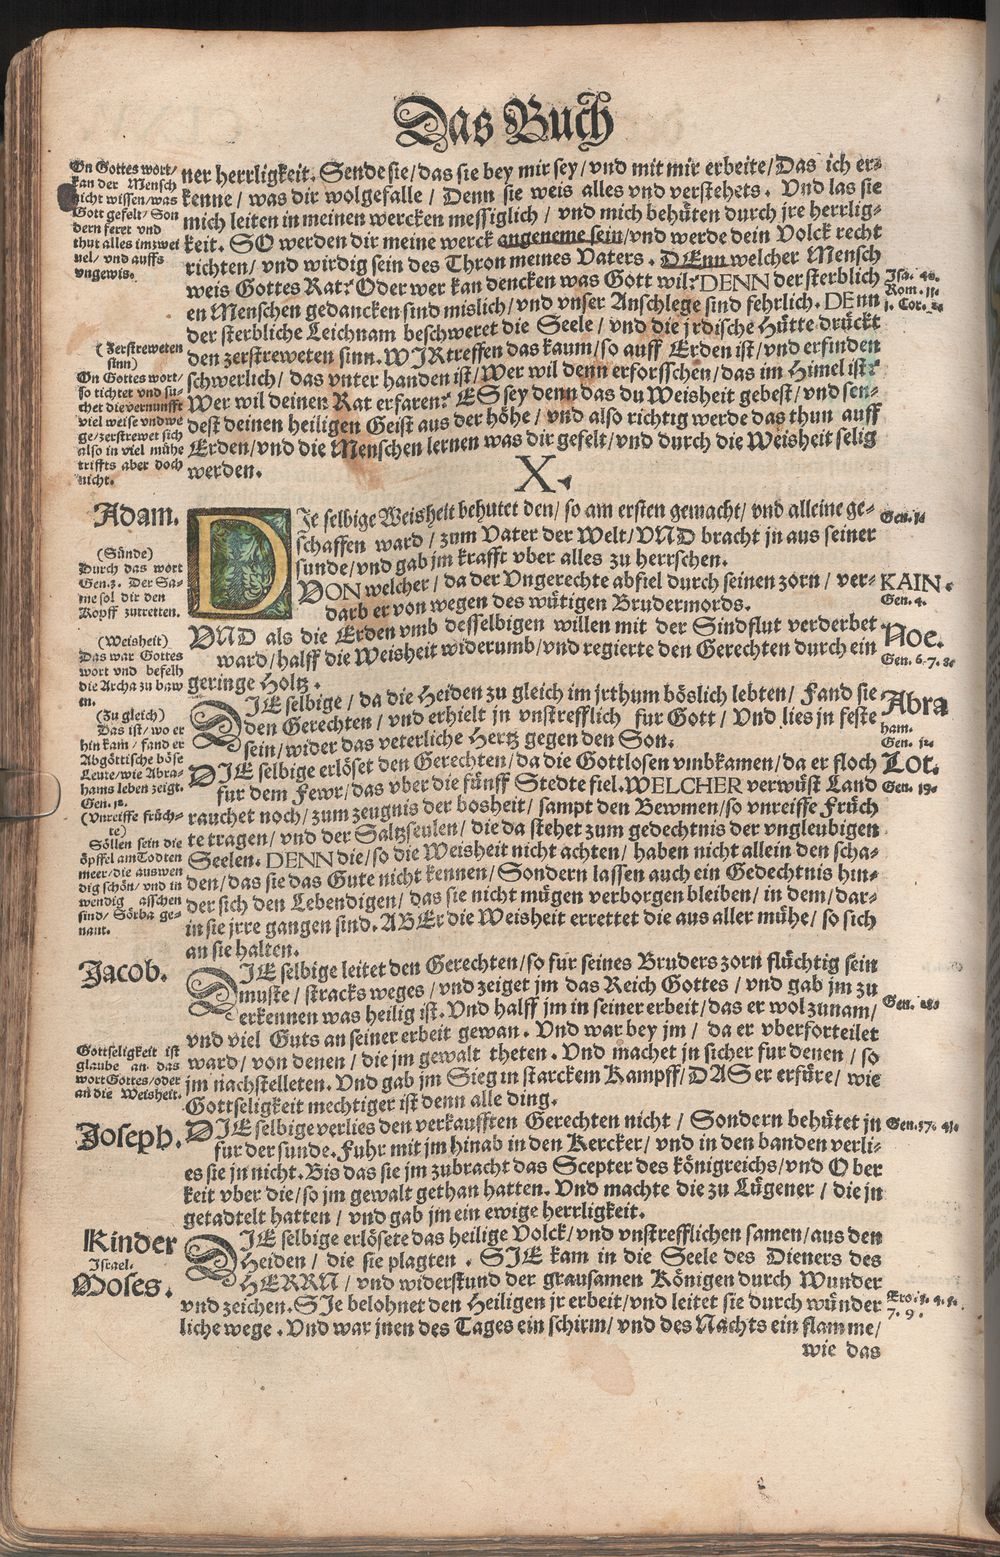 Das Buch
On Gottes wort/
kan der Mensch
nicht wissen/was
Gott gefelt/Son
dern feret vnd
thut alles im zwei
uel/ vnd auffs
vngewis.
ner herrligkeit. Sende sie/das sie bey mir sey/vnd mit mir erbeite/Das ich er-
kenne/ was dir wolgefalle/ Denn sie weis alles vnd verstehets. Vnd las sie
mich leiten in meinen wercken messiglich/ vnd mich behüten durch jre herrlig-
keit. SO werden dir meine werck angeneme sein/vnd werde dein Volck recht
richten/ vnd wirdig sein des Thron meines Vaters. DEnn welcher Mensch
weis Gottes Rat? Oder wer kan dencken was Gott wil? DENN der sterblich
en Menschen gedancken sind mislich/vnd vnser Anschlege sind fehrlich. DEnn
der sterbliche Leichnam beschweret die Seele/ vnd die jrdische Hütte drückt
den zerstreweten sinn. WIR treffen das kaum/so auff Erden ist/vnd erfinden
schwerlich/ das vnter handen ist/Wer wil denn erforsschen/das im Himel ist?
Wer wil deinen Rat erfaren? ES sey denn das du Weisheit gebest/vnd sen-
dest deinen heiligen Geist aus der höhe/ vnd also richtig werde das thun auff
Erden/vnd die Menschen lernen was dir gefelt/vnd durch die Weisheit selig
werden.
Isa. 40.
Rom. 11.
1. Cor. 2.
(Zerstreweten
sinn)
On Gottes wort/
so tichtet vnd su-
chet die vernunfft
viel weise vnd we
ge/zerstrewet sich
also in viel mühe
triffts aber doch
nicht.
X.
Adam.
DIe selbige Weisheit behutet den/ so am ersten gemacht/ vnd alleine ge-
schaffen ward/ zum Vater der Welt/VND bracht jn aus seiner
sunde/vnd gab jm krafft vber alles zu herrschen.
Gen. 1.
(Sünde)
Durch das wort
Gen.3. Der Sa-
me sol dir den
Kopff zutretten.
VON welcher/ da der Vngerechte abfiel durch seinen zorn/ ver-
darb er von wegen des wütigen Brudermords.
KAIN.
Gen. 4.
(Weisheit)
Das war Gottes
wort vnd befelh
die Archa zu baw
en.
VND als die Erden vmb desselbigen willen mit der Sindflut verderbet
ward/halff die Weisheit widerumb/vnd regierte den Gerechten durch ein
geringe Holtz.
Noe.
Gen. 6. 7. 8.
(Zu gleich)
Das ist/wo er
hin kam/ fand er
Abgöttische böse
Leute/wie Abra-
hams leben zeigt.
Gen. 12.
DIE selbige/ da die Heiden zu gleich im jrthum böslich lebten/ Fand sie
den Gerechten/ vnd erhielt jn vnstrefflich fur Gott/ Vnd lies jn feste
sein/wider das veterliche Hertz gegen den Son.
Abra
ham.
Gen. 12.
DIE selbige erlöset den Gerechten/da die Gottlosen vmbkamen/da er floch
fur dem Fewr/das vber die fünff Stedte fiel. WELCHER verwüst Land
rauchet noch/zum zeugnis der bosheit/ sampt den Bewmen/so vnreiffe Früch
te tragen/ vnd der Saltzseulen/ die da stehet zum gedechtnis der vngleubigen
Seelen. DENN die/so die Weisheit nicht achten/ haben nicht allein den scha-
den/das sie das Gute nicht kennen/ Sondern lassen auch ein Gedechtnis hin-
der sich den Lebendigen/ das sie nicht mügen verborgen bleiben/ in dem/dar-
in sie jrre gangen sind. ABEr die Weisheit errettet die aus aller mühe/ so sich
an sie halten.
Lot.
Gen. 19.
(Vnreiffe früch-
te)
Söllen sein die
öpffel am Todten
meer/die auswen
dig schön/ vnd in
wendig asschen
sind/ Sorba ge-
nant.
Jacob.
DIE selbige leitet den Gerechten/so fur seines Bruders zorn flüchtig sein
muste/ stracks weges/ vnd zeiget jm das Reich Gottes/ vnd gab jm zu
erkennen was heilig ist. Vnd halff jm in seiner erbeit/das er wol zunam/
vnd viel Guts an seiner erbeit gewan. Vnd war bey jm/ da er vberforteilet
ward/ von denen/ die jm gewalt theten. Vnd machet jn sicher fur denen/ so
jm nachstelleten. Vnd gab jm Sieg in starckem Kampff/DAS er erfüre/ wie
Gottseligkeit mechtiger ist denn alle ding.
Gen. 28.
Gottseligkeit ist
glaube an das
wort Gottes/oder
an die Weisheit.
Joseph.
DIE selbige verlies den verkaufften Gerechten nicht/ Sondern behütet jn
fur der sunde. Fuhr mit jm hinab in den Kercker/ vnd in den banden verli-
es sie jn nicht. Bis das sie jm zubracht das Scepter des königreichs/vnd Ober
keit vber die/so jm gewalt gethan hatten. Vnd machte die zu Lügener/ die jn
getadtelt hatten/ vnd gab jm ein ewige herrligkeit.
Gen.37. 41.
Kinder
Israel.
Moses.
DIE selbige erlösete das heilige Volck/vnd vnstrefflichen samen/aus den
Heiden/ die sie plagten. SIE kam in die Seele des Dieners des
HERRN/ vnd widerstund der grausamen Königen durch Wunder
vnd zeichen. SIe belohnet den Heiligen jr erbeit/vnd leitet sie durch wünder
liche wege. Vnd war jnen des Tages ein schirm/ vnd des Nachts ein flamme/
Exo. 3. 4. 5.
7. 9.
wie das